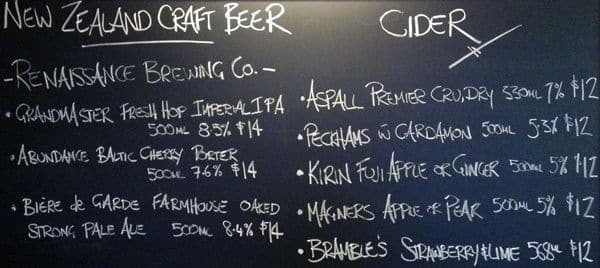 NEW ZEALAND CRAFT BEER
- RENAISSANCE BREWING CO. -
• GRANDMASTER FRESH HOP IMPERIAL IPA
500ML 8.5% $14
• ABUNDANCE BALTIC CHERRY PORTER
500ML 7.6% $14
• BIÈRE de GARDE FARMHOUSE OAKED
STRONG PALE ALE 500ML 8.4% $14
CIDER
• ASPALL PREMIER CRU, DRY 330ML 7% $12
• PECKHAMS w CARDAMON 500ML 5.3% $12
• KIRIN FUJI APPLE or GINGER 500ML 5% $12
• MAGNERS APPLE or PEAR 500ML 5% $12
• BRAMBLE'S STRAWBERRY & LIME 568ML $12